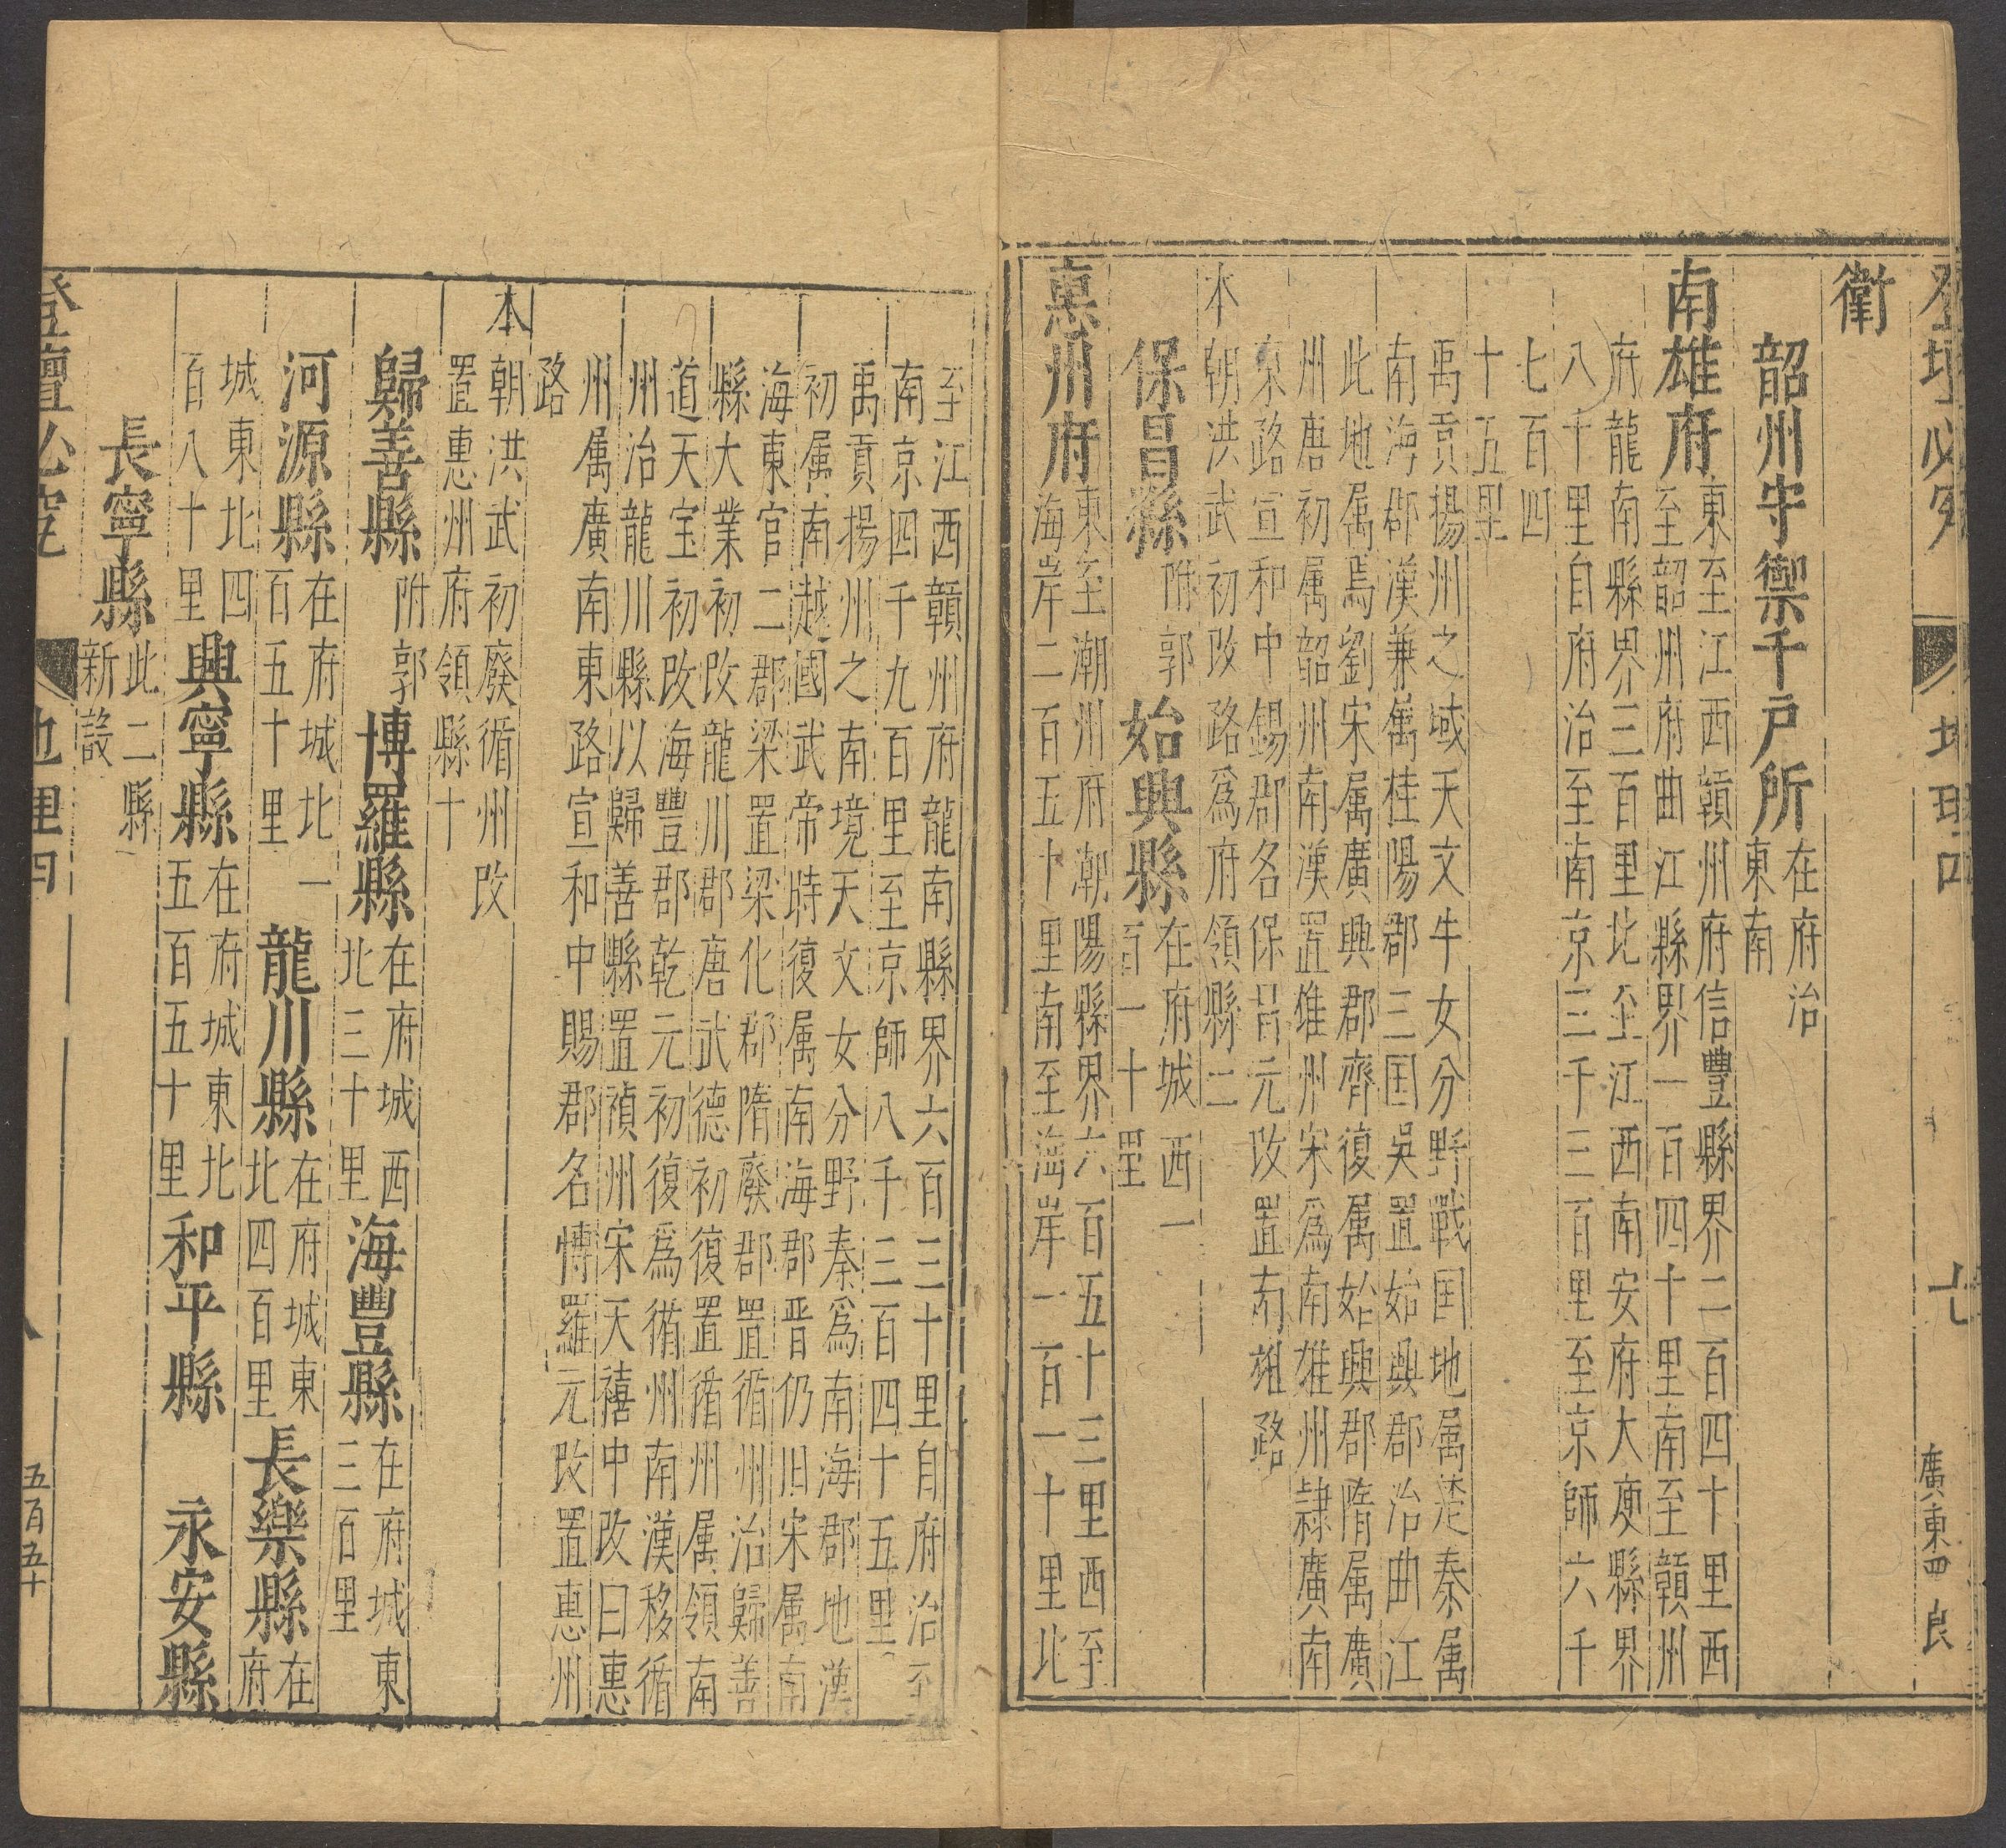 衛
韶州守禦千戶所在府治
東南
南雄府東至江西贛州府信豐縣界二百四十里西
至韶州府曲江縣界一百四十里南至贛州
府龍南縣界三百里北至江西南安府大庾縣界
八十里自府治至南京三千三百里至京師六千
七百四
十五里
禹貢揚州之域天文牛女分野戰国地属楚秦属
南海郡漢兼属桂陽郡三国吳置始興郡治曲江
此地属焉劉宋属廣興郡齊復属始興郡隋属廣
州唐初属韶州南漢置雄州宋爲南雄州隷廣南
東路宣和中錫郡名保昌元改置南雄路
本朝洪武初改路爲府領縣二
保昌縣附郭
始興縣在府城西一
百一十里
惠州府東至潮州府潮陽縣界六百五十三里西至
海岸二百五十里南至海岸一百一十里北
至江西贛州府龍南縣界六百三十里自府治至
南京四千九百里至京師八千三百四十五里
禹貢揚州之南境天文女分野秦爲南海郡地漢
初属南越國武帝時復属南海郡晋仍旧宋属南
海東官二郡梁置梁化郡隋廢郡置循州治歸善
縣大業初改龍川郡唐武德初復置循州属領南
道天宝初改海豐郡乾元初復爲循州南漢移循
州治龍川縣以歸善縣置禎州宋天禧中改曰惠
州属廣南東路宣和中賜郡名博羅元改置惠州
路
本朝洪武初廢循州改
置惠州府領縣十
歸善縣附郭
博羅縣在府城西
北三十里
海豐縣在府城東
三百里
河源縣在府城北一
百五十里
龍川縣在府城東
北四百里
長樂縣在
府
城東北四
百八十里
興寧縣在府城東北
五百五十里
和平縣
永安縣
長寧縣此二縣
新設
登壇必究
地理四
五百五十
廣東四
良